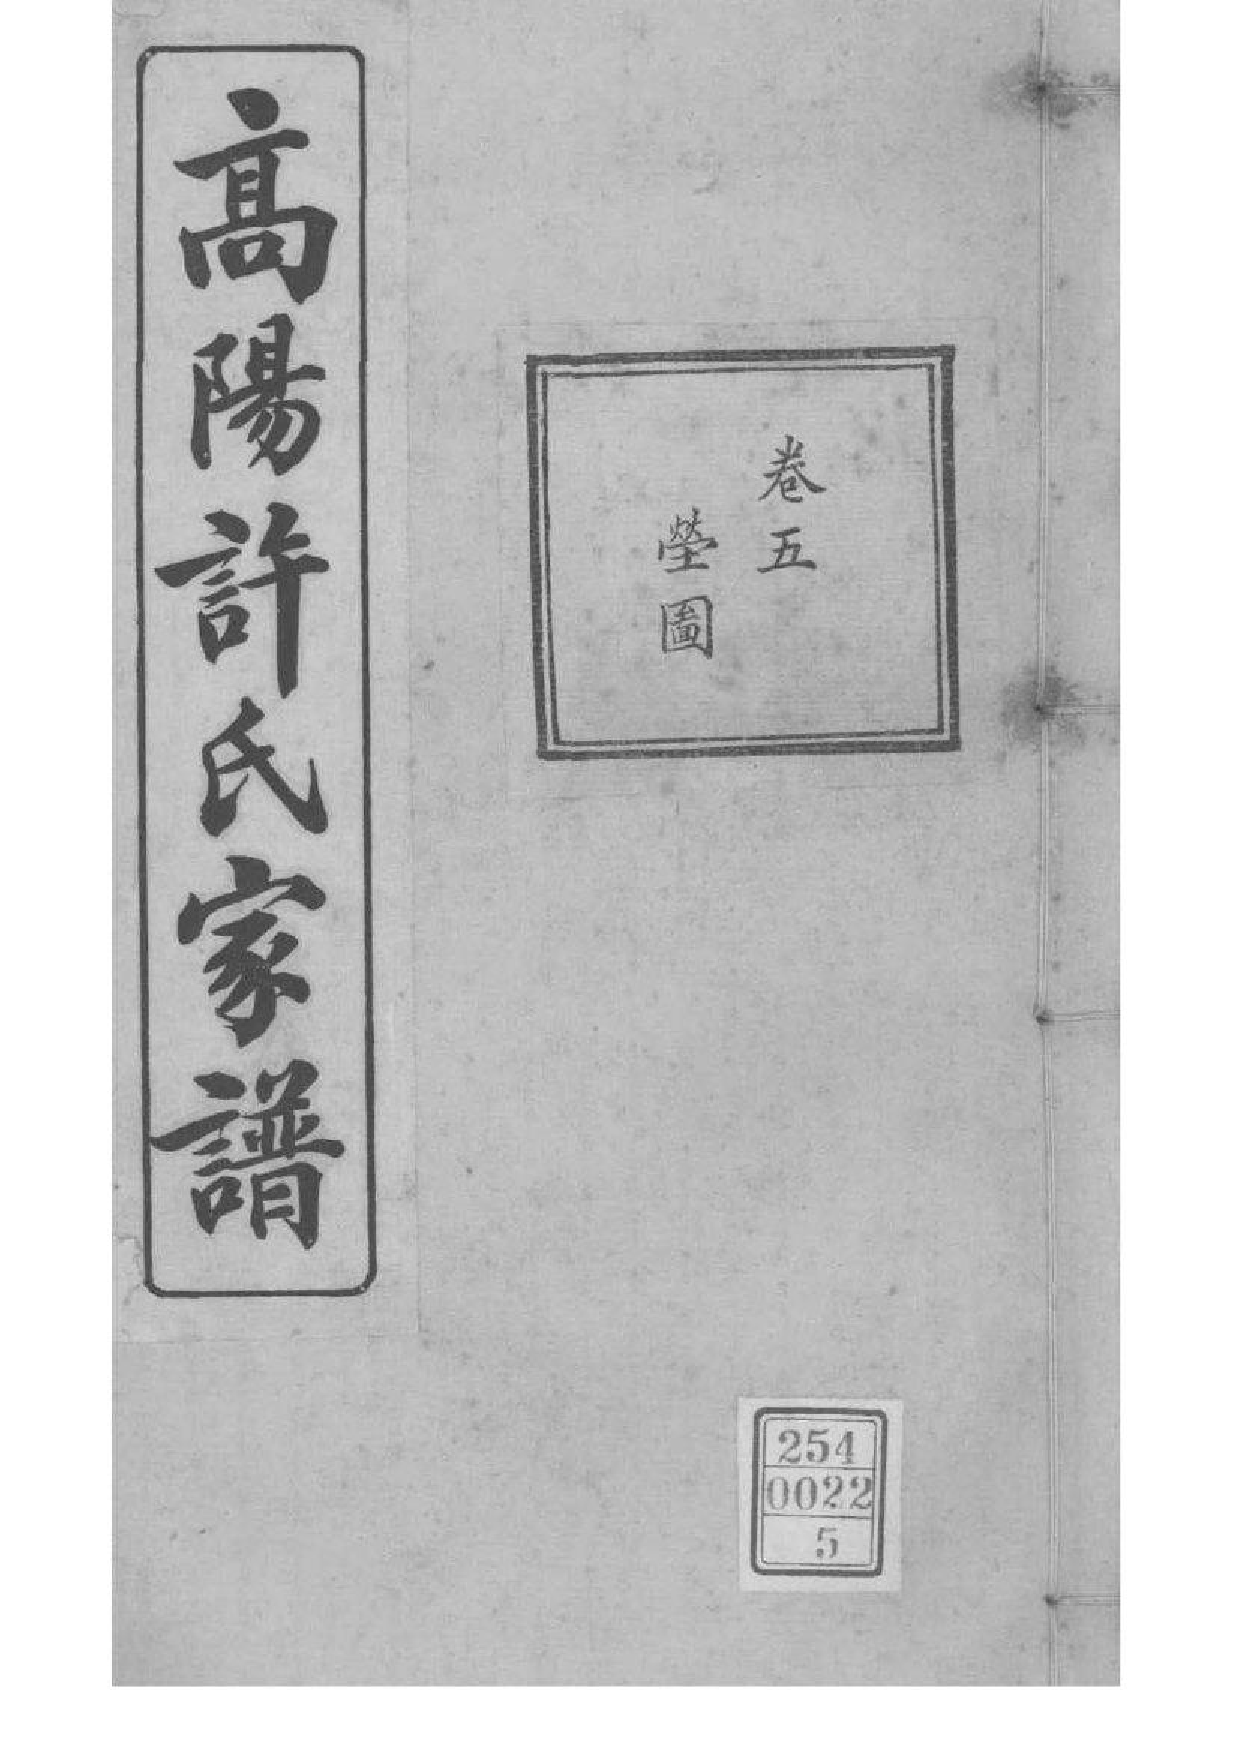 高陽許氏家譜
卷五
塋圖
254
0022
5